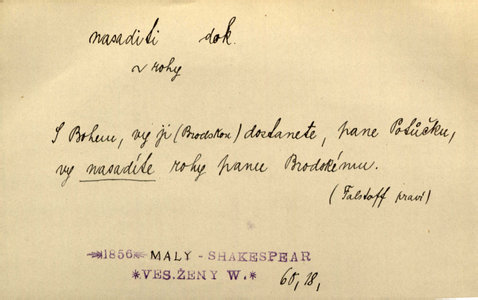 nasaditi dok.
~ rohy
S Bohem, vy ji (Brodskou) dostanete, pane Potůčku,
vy nasadíte rohy panu Brodskému.
(Falstaff praví)
1856 MALY - SHAKESPEAR
*VES.ŽENY W.* 60,18,